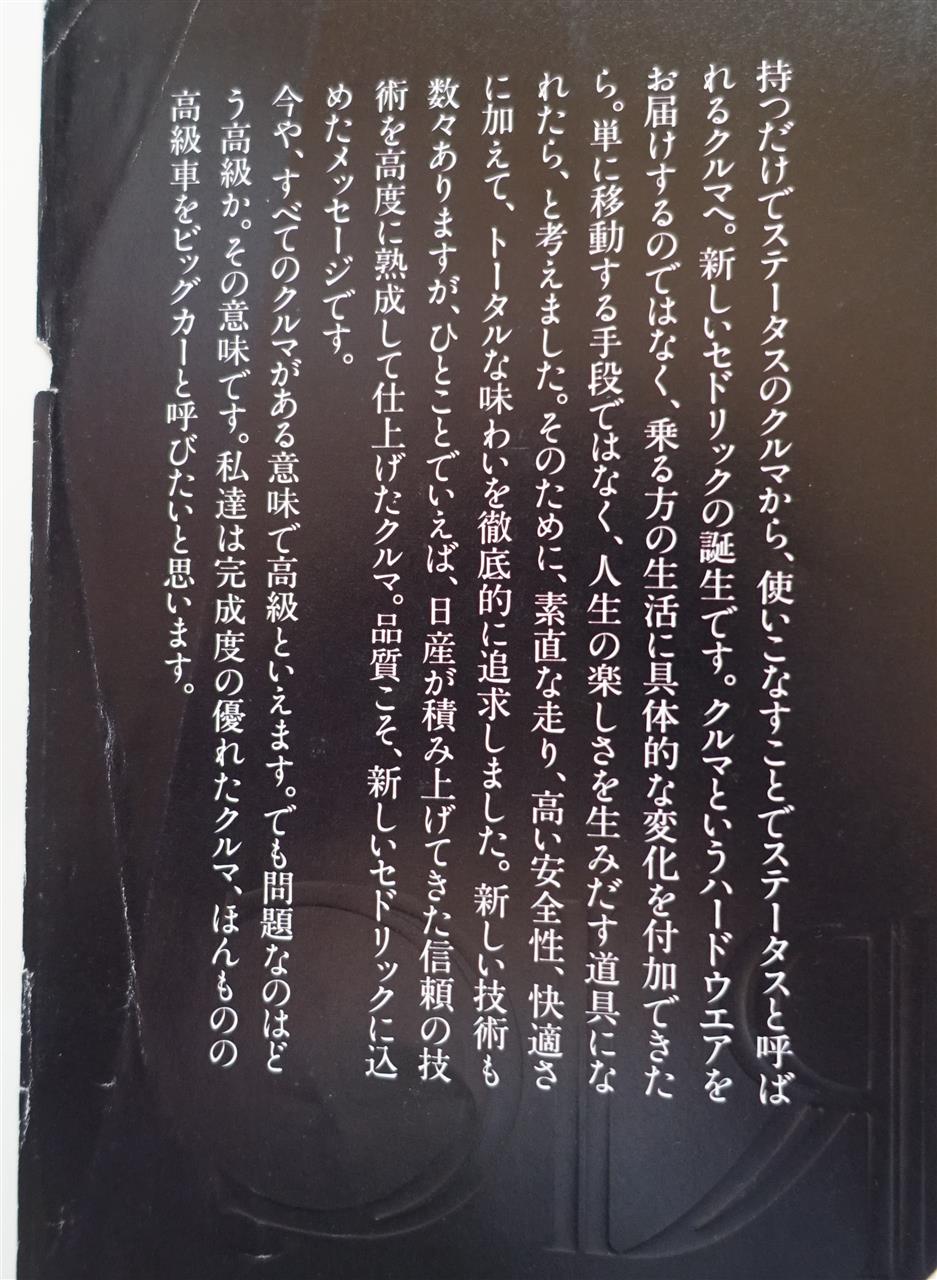 持つだけでステータスのクルマから、使いこなすことでステータスと呼ば
れるクルマへ。新しいセドリックの誕生です。クルマというハードウエアを
お届けするのではなく、乗る方の生活に具体的な変化を付加できた
ら。単に移動する手段ではなく、人生の楽しさを生みだす道具にな
れたら、と考えました。そのために、素直な走り、高い安全性、快適さ
に加えて、トータルな味わいを徹底的に追求しました。新しい技術も
数々ありますが、ひとことでいえば、日産が積み上げてきた信頼の技
術を高度に熟成して仕上げたクルマ。品質こそ、新しいセドリックに込
めたメッセージです。
今や、すべてのクルマがある意味で高級といえます。でも問題なのはど
う高級か。その意味です。私達は完成度の優れたクルマ、ほんものの
高級車をビッグカーと呼びたいと思います。